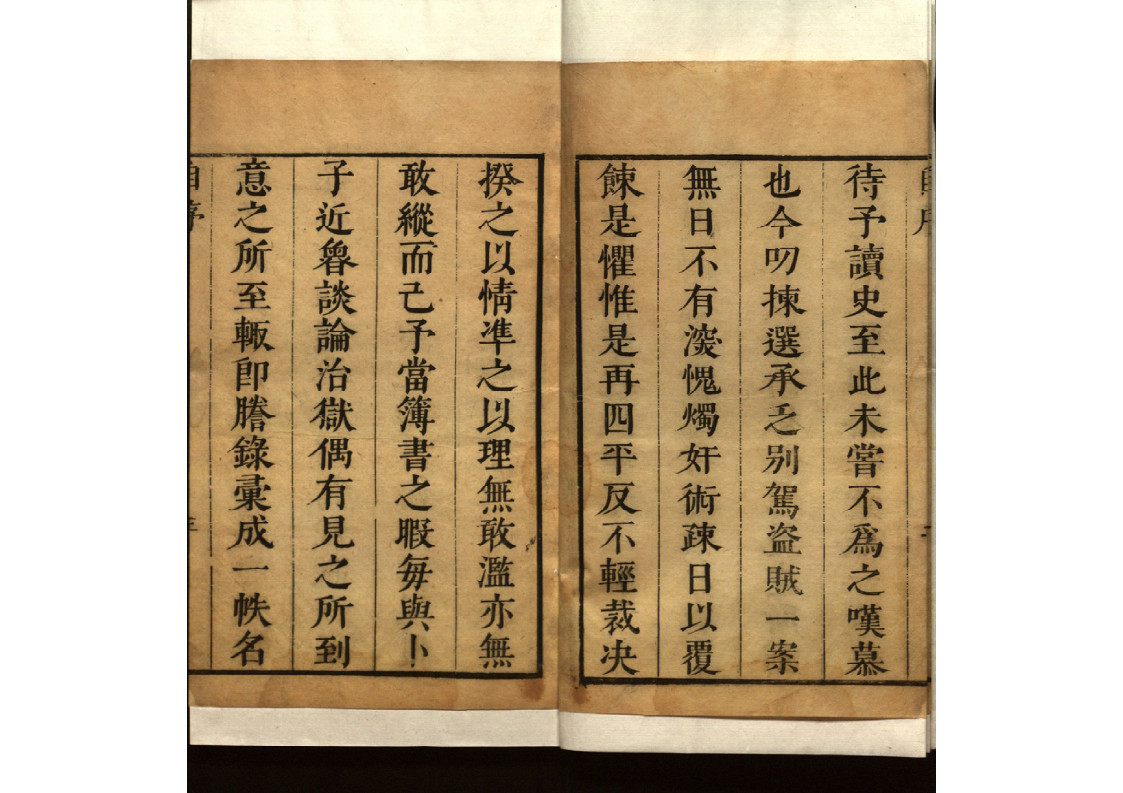 待予讀史至此未嘗不爲之嘆慕
也今叨揀選承乏别駕盜賊一案
無日不有深愧燭奸術疎日以覆
餗是懼惟是再四平反不輕裁决
揆之以情準之以理無敢濫亦無
敢縱而己予當簿書之暇每與卜
子近魯談論治獄偶有見之所到
意之所至輙卽謄錄彚成一帙名
自序